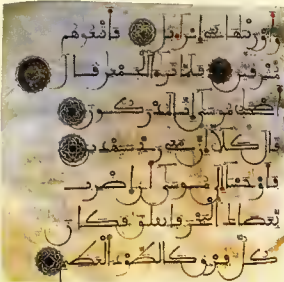 وأورثناها بني إسرائيل فأتبعوهم
مشرقين فلما ترءا الجمعان قال
أصحاب موسى إنا لمدركون
قال كلا إن معي ربي سيهدين
فأوحينا إلى موسى أن اضرب
بعصاك البحر فانفلق فكان
كل فرق كالطود العظيم